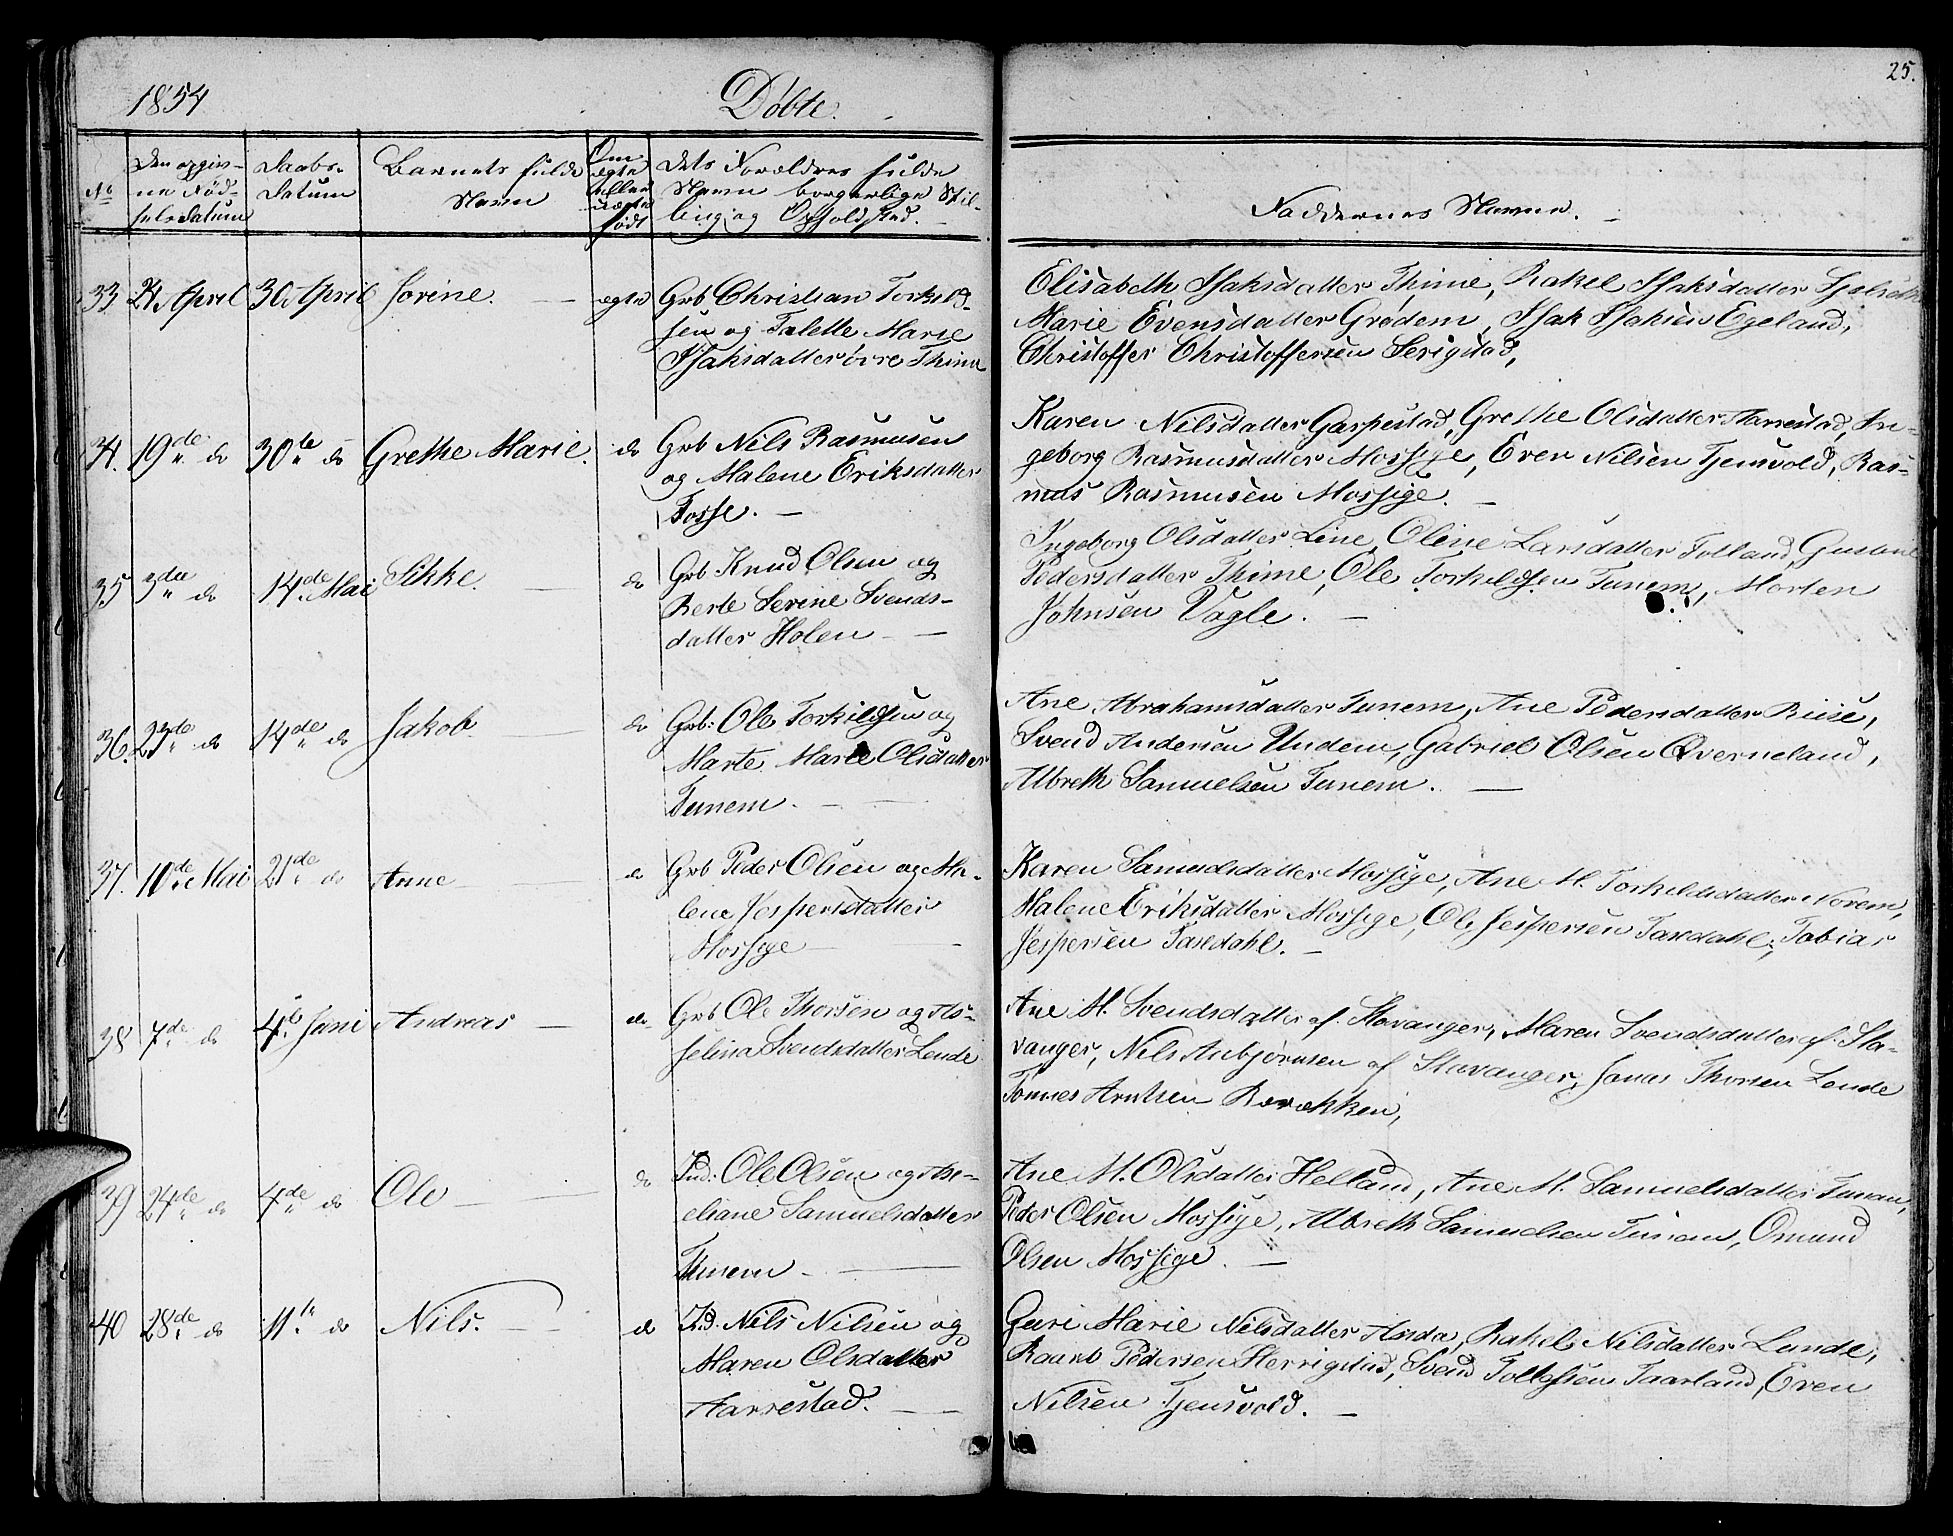 1854
Döbte.
25.
No
Den opgiv-
ne Föd-
selsdatum
Daabs-
Datum
Barnets fulde
Navn
Om
ægte
eller
uægte
födt
Dets Forældres fulde
Navn borgerlige Stil-
ling og Opholdsted.
Faddernes Navne.
33 21 April 30 April Sorine. ægte Grb Christian Torkild-
sen og Talette Marie
Isaksdatter övre Thime
Elisabeth Isaksdatter Thime, Rakel Isaksdatter
Marie Evensdatter Grødem, Isak Isaksen Egeland,
Christoffer Christoffersen Serigstad,
34. 19de do 30te do Grethe Marie. do Grb Nils Rasmusen
og Malene Eriksdatter
Fosse.
Karen Nilsdatter Garpestad, Grethe Olsdatter Aarrestad, In-
geborg Rasmusdatter Mossige, Even Nilsen Tjensvold, Ras-
mus Rasmusen Mossige.
35 3die do 14de Mai Sikke. do Grb Knud Olsen og
Berte Serine Svends-
datter Holen
Ingeborg Olsdatter Line, Oline Larsdatter Folland, Gustene
Pedersdatter Thime, Ole Torkildsen Tunem, Morten
Johnsen Vagle.
36. 23de do 14de do Jakob do Grb: Ole Torkildsen og
Marte Marie Olsdatter
Tunem.
Ane Abrahamsdatter Tunem, Ane Pedersdatter Riise,
Svend Andersen Undem, Gabriel Olsen Qverneland,
Albreth Samuelsen Tunem.
37. 10de Mai 21de do Anne do Grb Peder Olsen og Ma-
lene Jespersdatter
Mossige
Karen Samuelsdatter Mossige, Ane M. Torkildsdatter Norem,
Malene Eriksdatter Mossige, Ole Jespersen Taxedahl, Tobias
Jespersen Taxedahl.
38 7de do 4de Juni Andreas do Grb Ole Thorsen og As-
selina Svendsdatter Lende
Ane M. Svendsdatter af Stavanger, Maren Svendsdatter af Sta-
vanger, Nils Anbjørnsen af Stavanger, Jonas Thorsen Lende
Tönnes Arntsen
39 24de do 4de do Ole do Ind: Ole Olsen og Ase-
eliane Samuelsdatter
Tunem
Ane M. Olsdatter Helland, Ane M. Samuelsdatter Tunem,
Peder Olsen Mossige, Albreth Samuelsen Tunem, Omund
Olsen Mossige.
40 28de do 11te do Nils. do Id. Nils Nilsen og
Maren Olsdatter
Aarrestad.
Guri Marie Nilsdatter Asda, Rakel Nilsdatter Lunde,
Pedersen Herrigstad, Svend Tollefsen Taarland, Even
Nilsen Tjensvold.